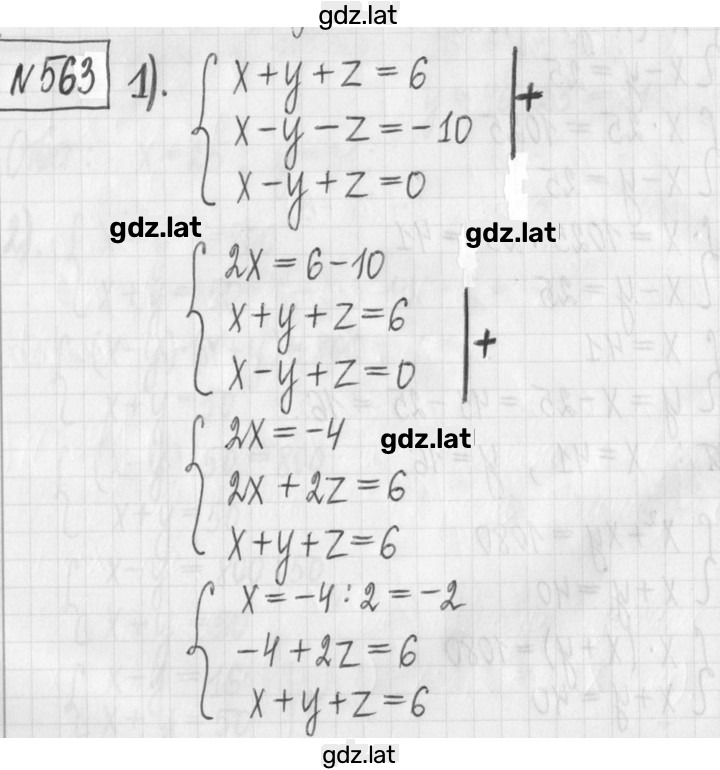 gdz.lat
N563 1). x+y+z=6
x-y-z=-10 +
x-y+z=0
gdz.lat gdz.lat
2x=6-10
x+y+z=6 +
x-y+z=0
2x=-4 gdz.lat
2x+2z=6
x+y+z=6
x=-4:2=-2
-4+2z=6
x+y+z=6
gdz.lat